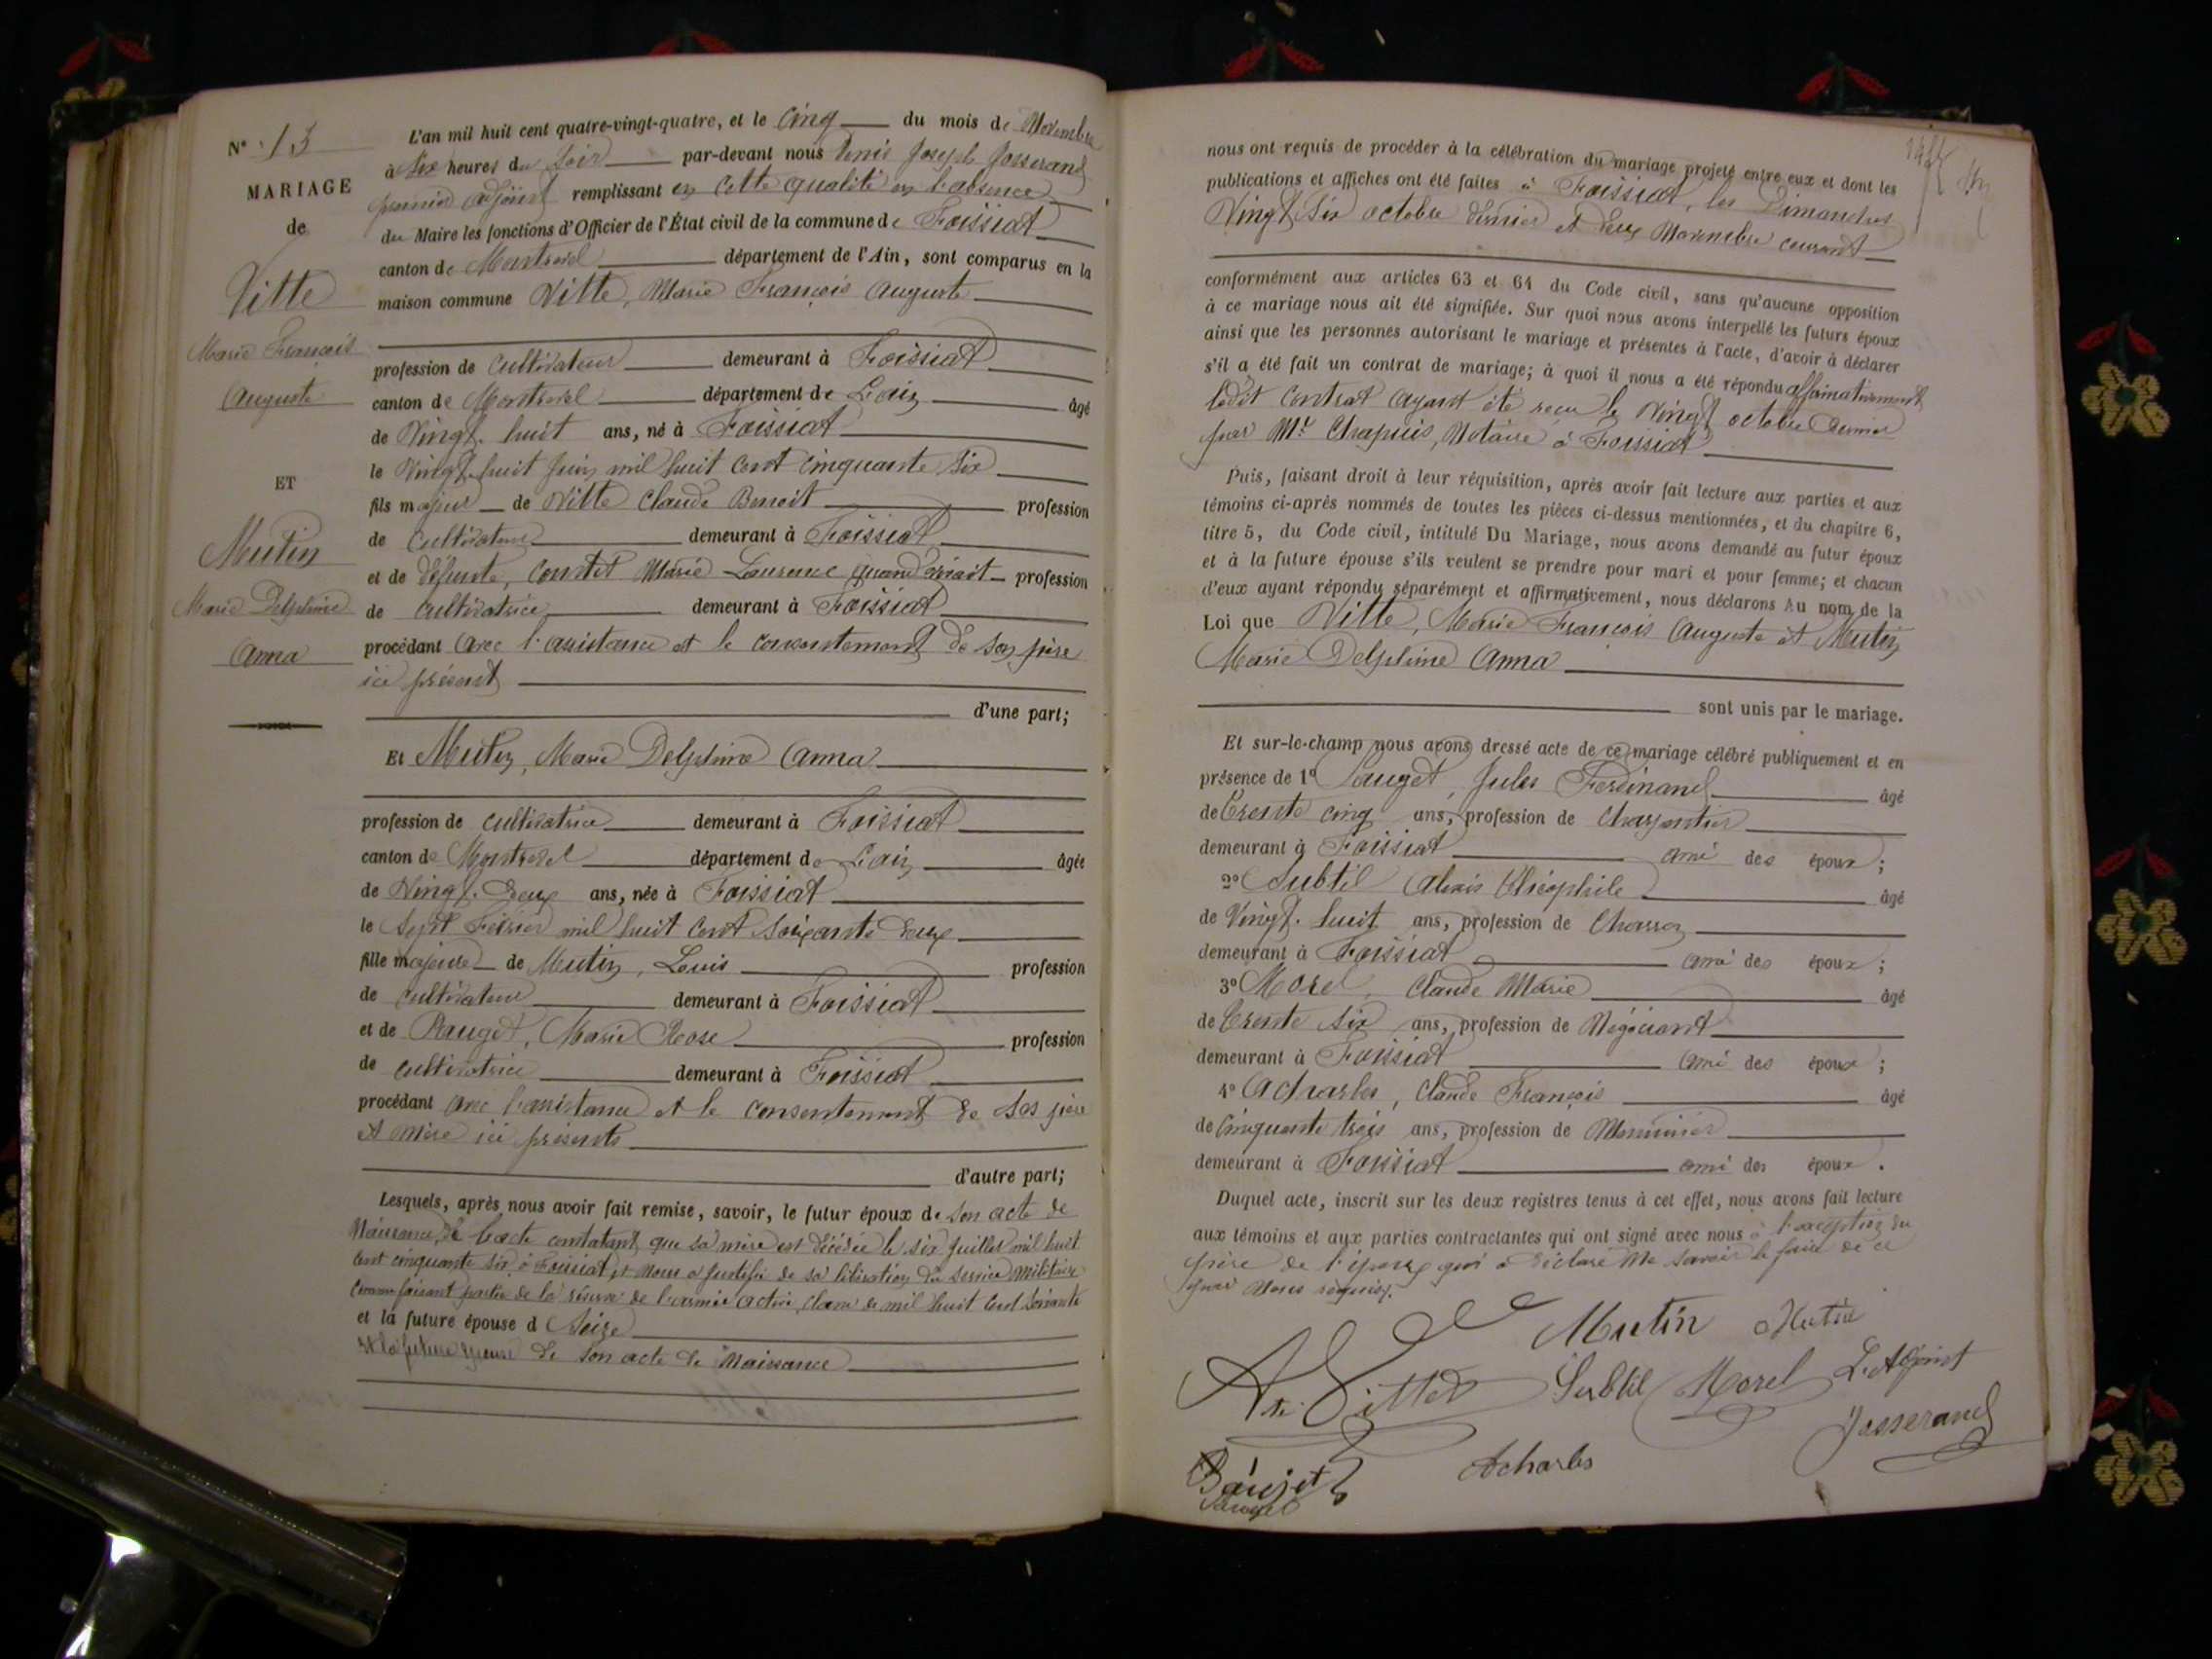 N° 13
MARIAGE
de
Vitte
Marie François
Auguste
ET
Mutin
Marie Delphine
Anna
L'an mil huit cent quatre-vingt-quatre, et le cinq du mois de Novembre
à Six heures du Soir par-devant nous Denis Joseph Josserand
premier adjoint remplissant en cette qualité en l'absence
du Maire les fonctions d'Officier de l'État civil de la commune de Foissiat
canton de Montrevel département de l'Ain, sont comparus en la
maison commune Vitte, Marie François Auguste
profession de cultivateur demeurant à Foissiat
canton de Montrevel département de L'ain âgé
de Vingt-huit ans, né à Foissiat
le Vingt-huit Juin mil huit cent cinquante Six
fils majeur de Vitte Claude Benoit profession
de cultivateur demeurant à Foissiat
et de défunte, Contet Marie Laurence quand vivait profession
de cultivatrice demeurant à Foissiat
procédant avec l'assistance et le consentement de son père
ici présent
d'une part;
Et Mutin, Marie Delphine Anna
profession de cultivatrice demeurant à Foissiat
canton de Montrevel département de L'ain âgée
de Vingt-Deux ans, née à Foissiat
le Sept Février mil huit cent Soixante Deux
fille majeure de Mutin, Louis profession
de cultivateur demeurant à Foissiat
et de Pauget, Marie Rose profession
de cultivatrice demeurant à Foissiat
procédant avec l'assistance et le consentement de ses père
et mère ici présents
d'autre part;
Lesquels, après nous avoir fait remise, savoir, le futur époux de son acte de
Naissance, de l'acte constatant que sa mère est décédée le six Juillet mil huit
cent cinquante six à Foissiat, et nous a justifié de sa libération du service militaire
comme faisant partie de la réserve de l'armée active, classe de mil huit cent soixante
et la future épouse d Seize
et la future épouse de son acte de Naissance
nous ont requis de procéder à la célébration du mariage projeté entre eux et dont les
publications et affiches ont été faites à Foissiat, les Dimanches
Vingt Six octobre dernier et deux Novembre courant
conformément aux articles 63 et 64 du Code civil, sans qu'aucune opposition
à ce mariage nous ait été signifiée. Sur quoi nous avons interpellé les futurs époux
ainsi que les personnes autorisant le mariage et présentes à l'acte, d'avoir à déclarer
s'il a été fait un contrat de mariage; à quoi il nous a été répondu affirmativement
ledit contrat ayant été reçu le Vingt octobre dernier
par Mr Chapuis, Notaire à Foissiat
Puis, faisant droit à leur réquisition, après avoir fait lecture aux parties et aux
témoins ci-après nommés de toutes les pièces ci-dessus mentionnées, et du chapitre 6,
titre 5, du Code civil, intitulé Du Mariage, nous avons demandé au futur époux
et à la future épouse s'ils veulent se prendre pour mari et pour femme; et chacun
d'eux ayant répondu séparément et affirmativement, nous déclarons Au nom de la
Loi que Vitte, Marie François Auguste et Mutin
Marie Delphine Anna
sont unis par le mariage.
Et sur-le-champ nous avons dressé acte de ce mariage célébré publiquement et en
présence de 1° Pauget, Jules Ferdinand âgé
de Trente cinq ans, profession de Charpentier
demeurant à Foissiat ami des époux;
2° Subtil Alexis Théophile âgé
de Vingt-huit ans, profession de Charron
demeurant à Foissiat ami des époux;
3° Morel, Claude Marie âgé
de Trente Six ans, profession de Négociant
demeurant à Foissiat ami des époux;
4° Acharles, Claude François âgé
de Cinquante trois ans, profession de Menuisier
demeurant à Foissiat ami des époux.
Duquel acte, inscrit sur les deux registres tenus à cet effet, nous avons fait lecture
aux témoins et aux parties contractantes qui ont signé avec nous à l'exception du
père de l'époux qui a déclaré ne savoir le faire de ce
par Nous requis.
Mutin Mutin
Vitte Subtil Morel L'Adjoint
Josserand
Acharles
Pauget